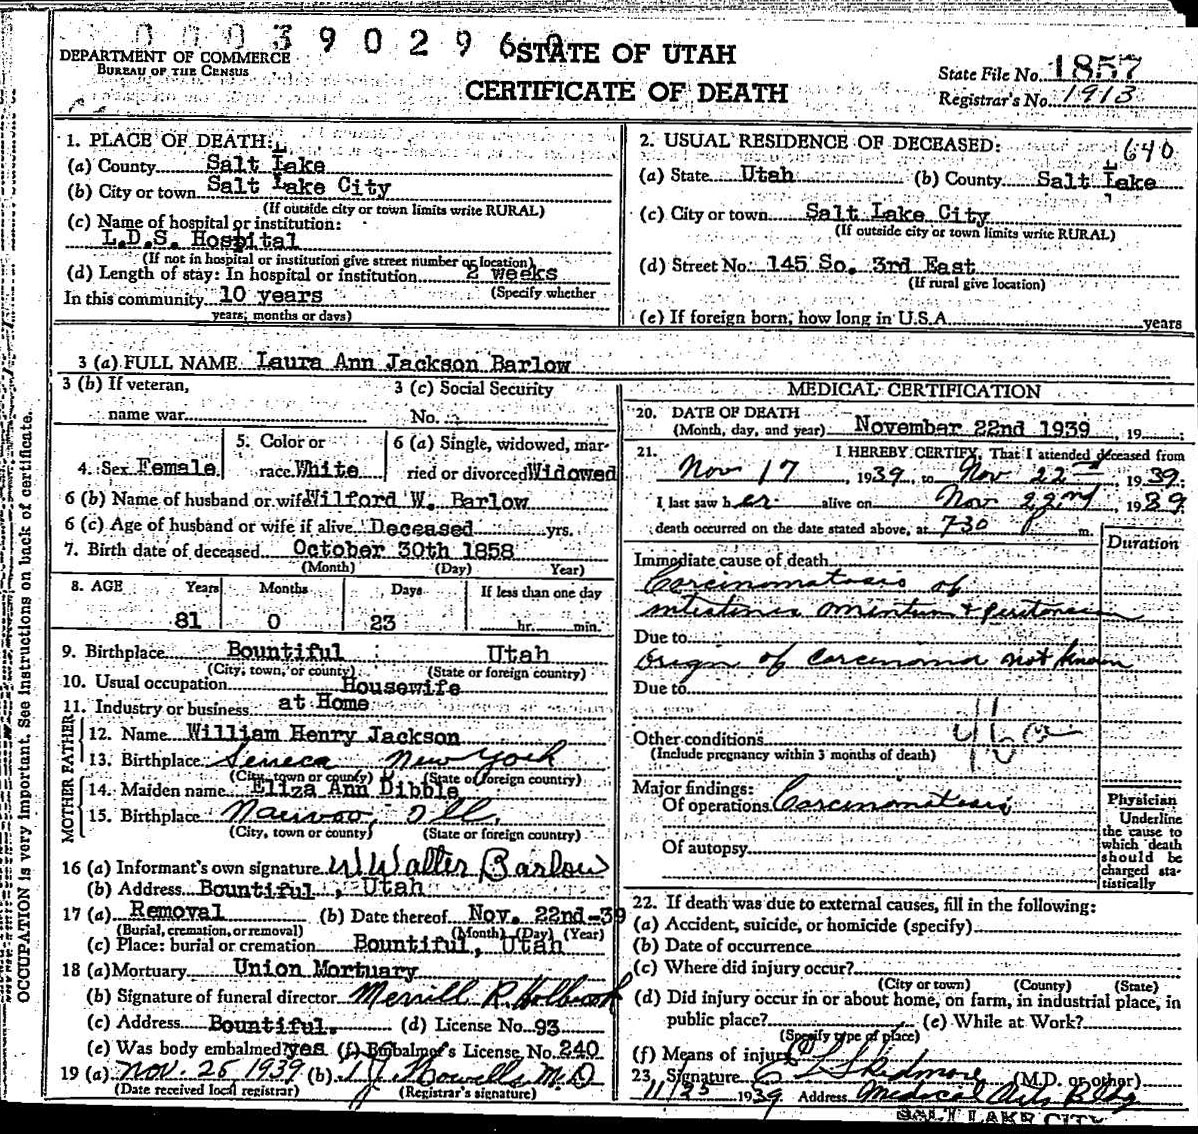 00039029 6
DEPARTMENT OF COMMERCE
BUREAU OF THE CENSUS
STATE OF UTAH
CERTIFICATE OF DEATH
State File No. 1857
Registrar's No. 1913
1. PLACE OF DEATH:
(a) County Salt Lake
(b) City or town Salt Lake City
(If outside city or town limits write RURAL)
(c) Name of hospital or institution:
L.D.S. Hospital
(If not in hospital or institution give street number or location)
(d) Length of stay: In hospital or institution 2 weeks
(Specify whether
In this community 10 years
years, months or days)
2. USUAL RESIDENCE OF DECEASED: 640
(a) State Utah (b) County Salt Lake
(c) City or town Salt Lake City
(If outside city or town limits write RURAL)
(d) Street No. 145 So. 3rd East
(If rural give location)
(e) If foreign born, how long in U.S.A. years
3 (a) FULL NAME Laura Ann Jackson Barlow
3 (b) If veteran,
name war
3 (c) Social Security
No.
4. Sex Female
5. Color or
race White
6 (a) Single, widowed, mar-
ried or divorced Widowed
6 (b) Name of husband or wife Wilford W. Barlow
6 (c) Age of husband or wife if alive Deceased yrs.
7. Birth date of deceased October 30th 1858
(Month) (Day) Year)
8. AGE Years Months Days If less than one day
81 0 23 hr. min.
9. Birthplace Bountiful Utah
(City, town, or county) (State or foreign country)
10. Usual occupation Housewife
11. Industry or business at Home
FATHER
12. Name William Henry Jackson
13. Birthplace Seneca New York
(City, town or county) (State of foreign country)
MOTHER
14. Maiden name Eliza Ann Dibble
15. Birthplace Nauvoo, Ill.
(City, town or county) (State or foreign country)
16 (a) Informant's own signature W Walter Barlow
(b) Address Bountiful, Utah
17 (a) Removal (b) Date thereof Nov. 22nd-39
(Burial, cremation, or removal) (Month) (Day) (Year)
(c) Place: burial or cremation Bountiful, Utah
18 (a) Mortuary Union Mortuary
(b) Signature of funeral director Merrill R. Holbrook
(c) Address Bountiful. (d) License No. 93
(e) Was body embalmed? yes (f) Embalmer's License No. 240
19 (a) Nov. 25 1939 (b) Howells M.D
(Date received local registrar) (Registrar's signature)
OCCUPATION is very important. See instructions on back of certificate.
MEDICAL CERTIFICATION
20. DATE OF DEATH
(Month, day, and year) November 22nd 1939, 19
21. I HEREBY CERTIFY, That I attended deceased from
Nov 17, 1939, to Nov 22nd, 1939;
I last saw her alive on Nov 22nd, 1939
death occurred on the date stated above, at 730 P m.
Duration
Immediate cause of death
Carcinomatosis of
intestines omentum & peritoneum
Due to
Origin of carcinoma not known
Due to
Other conditions
(Include pregnancy within 3 months of death)
Major findings:
Of operations Carcinomatosis
Of autopsy
Physician
Underline
the cause to
which death
should be
charged sta-
tistically
22. If death was due to external causes, fill in the following:
(a) Accident, suicide, or homicide (specify)
(b) Date of occurrence
(c) Where did injury occur?
(City or town) (County) (State)
(d) Did injury occur in or about home, on farm, in industrial place, in
public place? (e) While at Work?
(Specify type of place)
(f) Means of injury
23. Signature C L Skidmore (M.D. or other)
11/23 1939 Address Medical Arts Bldg
SALT LAKE CITY